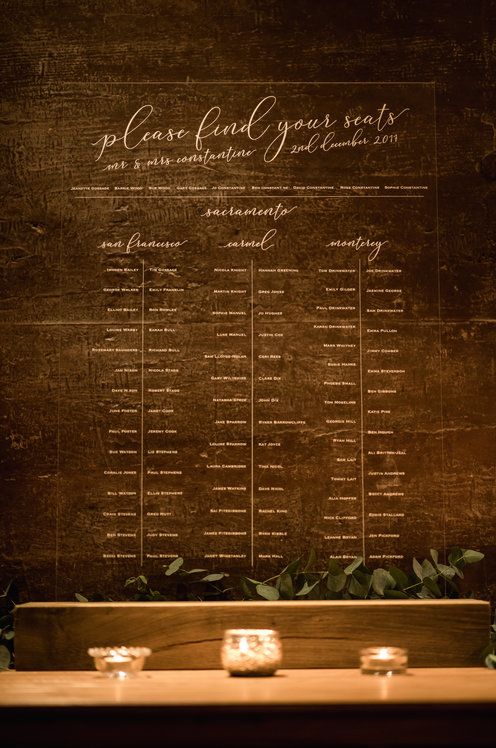 please find your seats
mr & mrs constantine 2nd december 2017
Jeanette Gossage Barrie Wood Sue Wood Gary Gossage Jo Constantine Ben Constantine David Constantine Ross Constantine Sophie Constantine
sacramento
san francisco carmel monterey
Imogen Bailey Tim Gossage Nicola Knight Hannah Greening Tom Drinkwater Joe Drinkwater
George Walker Emily Franklin Martin Knight Greg Jones Emily Gilder Jasmine George
Elliot Bailey Ben Rowles Sophie Manuel Jo Hughes Paul Drinkwater Sam Drinkwater
Louise Warby Sarah Bull Luke Manuel Justin Cox Karen Drinkwater Emma Pullon
Rosemary Saunders Richard Bull Sam Lloyd-Nolan Ceri Rees Mark Whitney Jimmy Comber
Jan Nixon Nicola Stags Gary Wiltshire Clare Dix Susie Harris Emma Steverson
Dave Nixon Robert Stags Natasha Spice John Dix Phoebe Small Ben Gibbons
June Foster Janet Cook Jake Sparrow River Barrowcliffe Tom Moseling Katie Pike
Paul Foster Jeremy Cook Louise Sparrow Kat Joyce Georgie Hill Ben Hough
Sue Watson Liz Stephens Laura Cambridge Tina Nicol Ryan Hill Ali Britten-Veal
Coralie Jones Paul Stephens James Watkins Dave Nicol Sam Lait Justin Andrews
Bill Watson Ellie Stephens Sai Fitzgibbons Rachel King Tommy Lait Beccy Andrews
Craig Stevens Greg Nutt James Fitzgibbons Rickie King Alia Hopper Eddie Stallard
Ben Stevens Judy Stephens Janet Winstanley Mark Hall Nick Clifford Jen Pickford
Becki Stevens Paul Stephens Leanne Bryan Adam Pickford
Alan Bryan